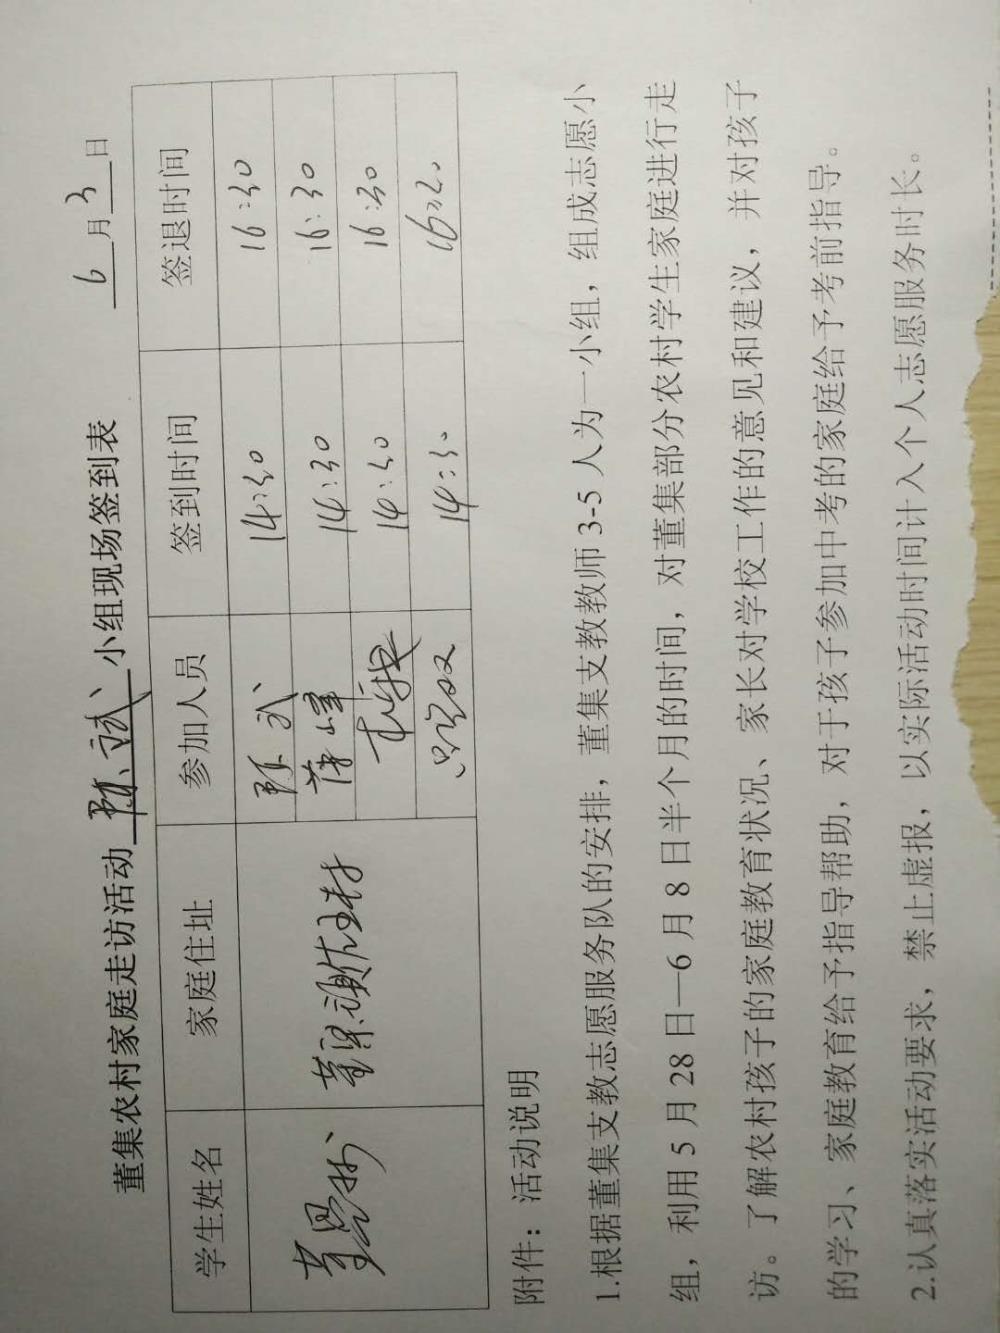 董集农村家庭走访活动 陈试 小组现场签到表
6月3日
学生姓名 家庭住址 参加人员 签到时间 签退时间
陈试 14:30 16:30
薛峰 14:30 16:30
14:30 16:30
14:30 16:30
附件：活动说明
1.根据董集支教志愿服务队的安排，董集支教教师3-5人为一小组，组成志愿小
组，利用5月28日—6月8日半个月的时间，对董集部分农村学生家庭进行走
访。了解农村孩子的家庭教育状况、家长对学校工作的意见和建议，并对孩子
的学习、家庭教育给予指导帮助，对于孩子参加中考的家庭给予考前指导。
2.认真落实活动要求，禁止虚报，以实际活动时间计入个人志愿服务时长。